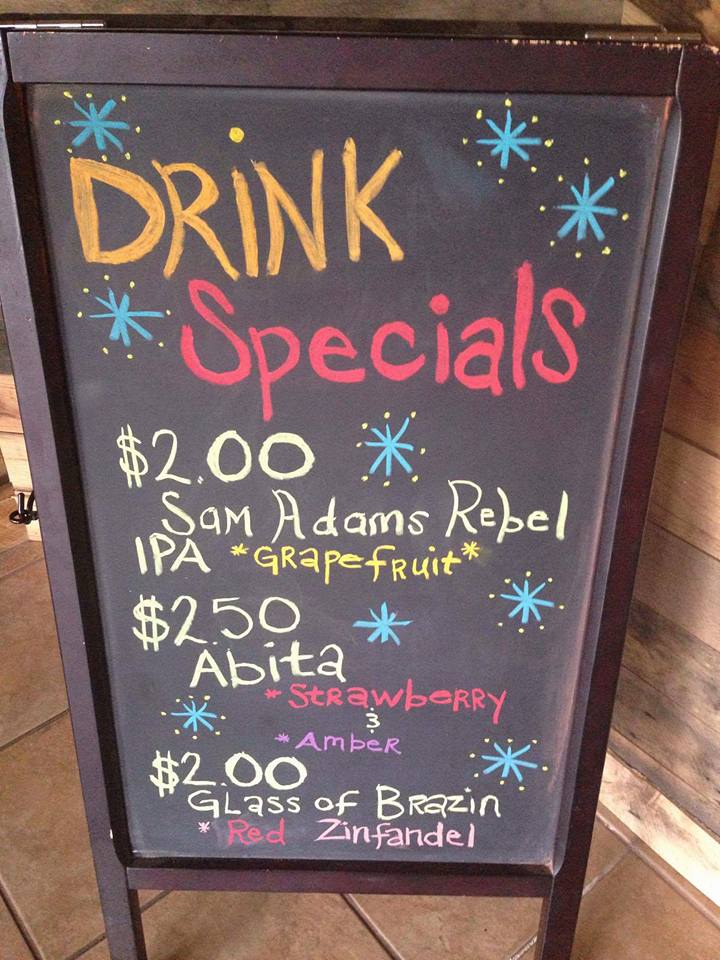 DRINK
Specials
$2.00
Sam Adams Rebel
IPA *GRAPEFRUIT*
$2.50
Abita
*Strawberry
&
*Amber
$2.00
Glass of Brazin
*Red Zinfandel